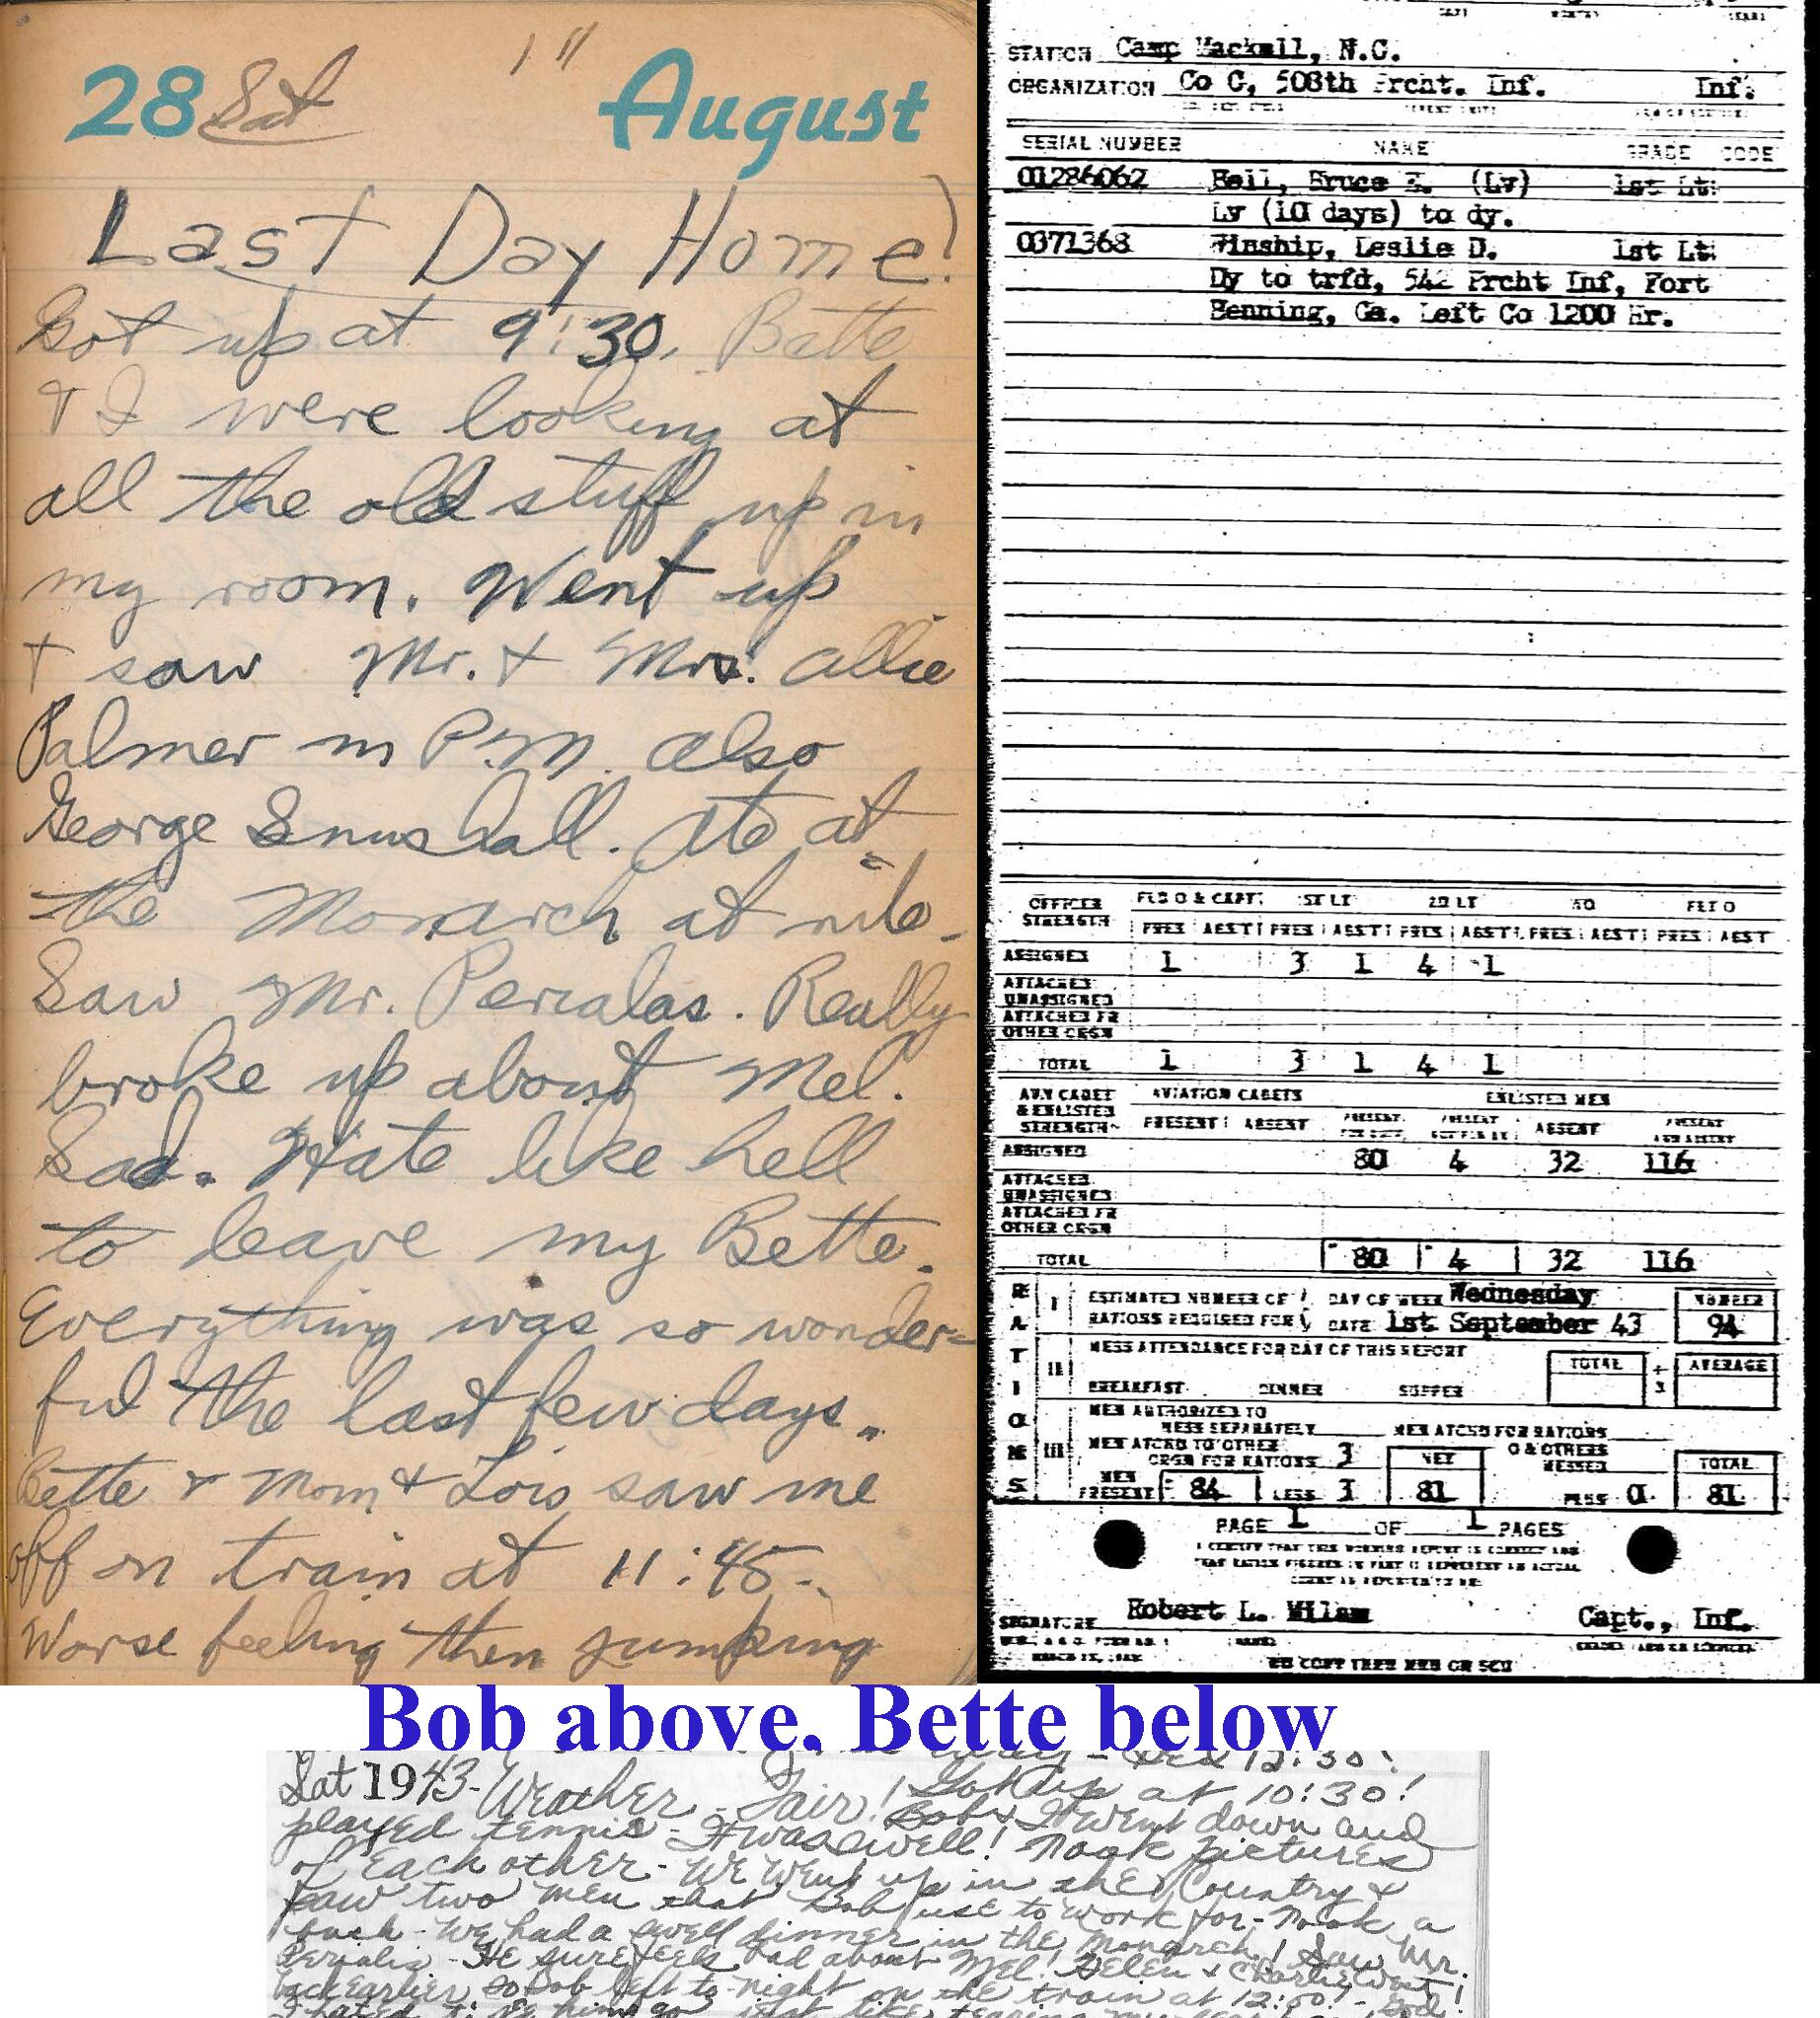 28 Sat August
Last Day Home!
Got up at 9:30. Bette
+ I were looking at
all the old stuff up in
my room. Went up
+ saw Mr. + Mrs. Allie
Palmer in P.M. also
George Snushall. Ate at
the Monarch at nite.
Saw Mr. Pericalas. Really
broke up about Mel.
Sad. Hate like hell
to leave my Bette.
Everything was so wonder-
ful the last few days.
Bette + Mom + Lois saw me
off on train at 11:45.
Worse feeling then jumping
STATION Camp Mackall, N.C.
ORGANIZATION Co C, 508th Prcht. Inf. Inf.
SERIAL NUMBER NAME GRADE CODE
01286062 Bell, Bruce E. (Lv) 1st Lt.
Lv (10 days) to dy.
0371368 Winship, Leslie D. 1st Lt.
Dy to trfd, 542 Prcht Inf, Fort
Benning, Ga. Left Co 1200 Hr.
OFFICER STRENGTH FLD O & CAPT. 1ST LT 2D LT WO FLT O
PRES ABST PRES ABST PRES ABST PRES ABST PRES ABST
ASSIGNED 1 3 1 4 1
ATTACHED UNASSIGNED
ATTACHED FR OTHER ORGN
TOTAL 1 3 1 4 1
AVN CADET & ENLISTED STRENGTH AVIATION CADETS ENLISTED MEN
PRESENT ABSENT PRESENT FOR DUTY PRESENT NOT FOR DY ABSENT PRESENT AND ABSENT
ASSIGNED 80 4 32 116
ATTACHED UNASSIGNED
ATTACHED FR OTHER ORGN
TOTAL 80 4 32 116
RATIONS
I ESTIMATED NUMBER OF RATIONS REQUIRED FOR DAY OF WEEK Wednesday NUMBER
DATE 1st September 43 94
II MESS ATTENDANCE FOR DAY OF THIS REPORT TOTAL ÷ 3 AVERAGE
BREAKFAST DINNER SUPPER
III MEN AUTHORIZED TO MESS SEPARATELY MEN ATCHD FOR RATIONS
MEN ATCHD TO OTHER ORGN FOR RATIONS 3 NET O & OTHERS MESSED TOTAL
MEN PRESENT 84 LESS 3 81 PLUS 0 81
PAGE 1 OF 1 PAGES
I CERTIFY THAT THIS MORNING REPORT IS CORRECT AND
THAT RATION FIGURES IN PART II REPRESENT AN ACTUAL
SIGNATURE Robert L. Milam Capt., Inf.
Bob above, Bette below
12:30!
Sat 1943 - Weather - Fair! Got up at 10:30!
Bob + I went down and
played tennis - It was swell! Took pictures
of each other - We went up in the Country +
saw two men that Bob use to work for - Took a
- We had a swell dinner in the Monarch! Saw Mr.
Perialis - He sure feels bad about Mel! Helen + Charlie went
back earlier so Bob left to-night on the train at 12:00! - God!
I hated to him go just like tearing my